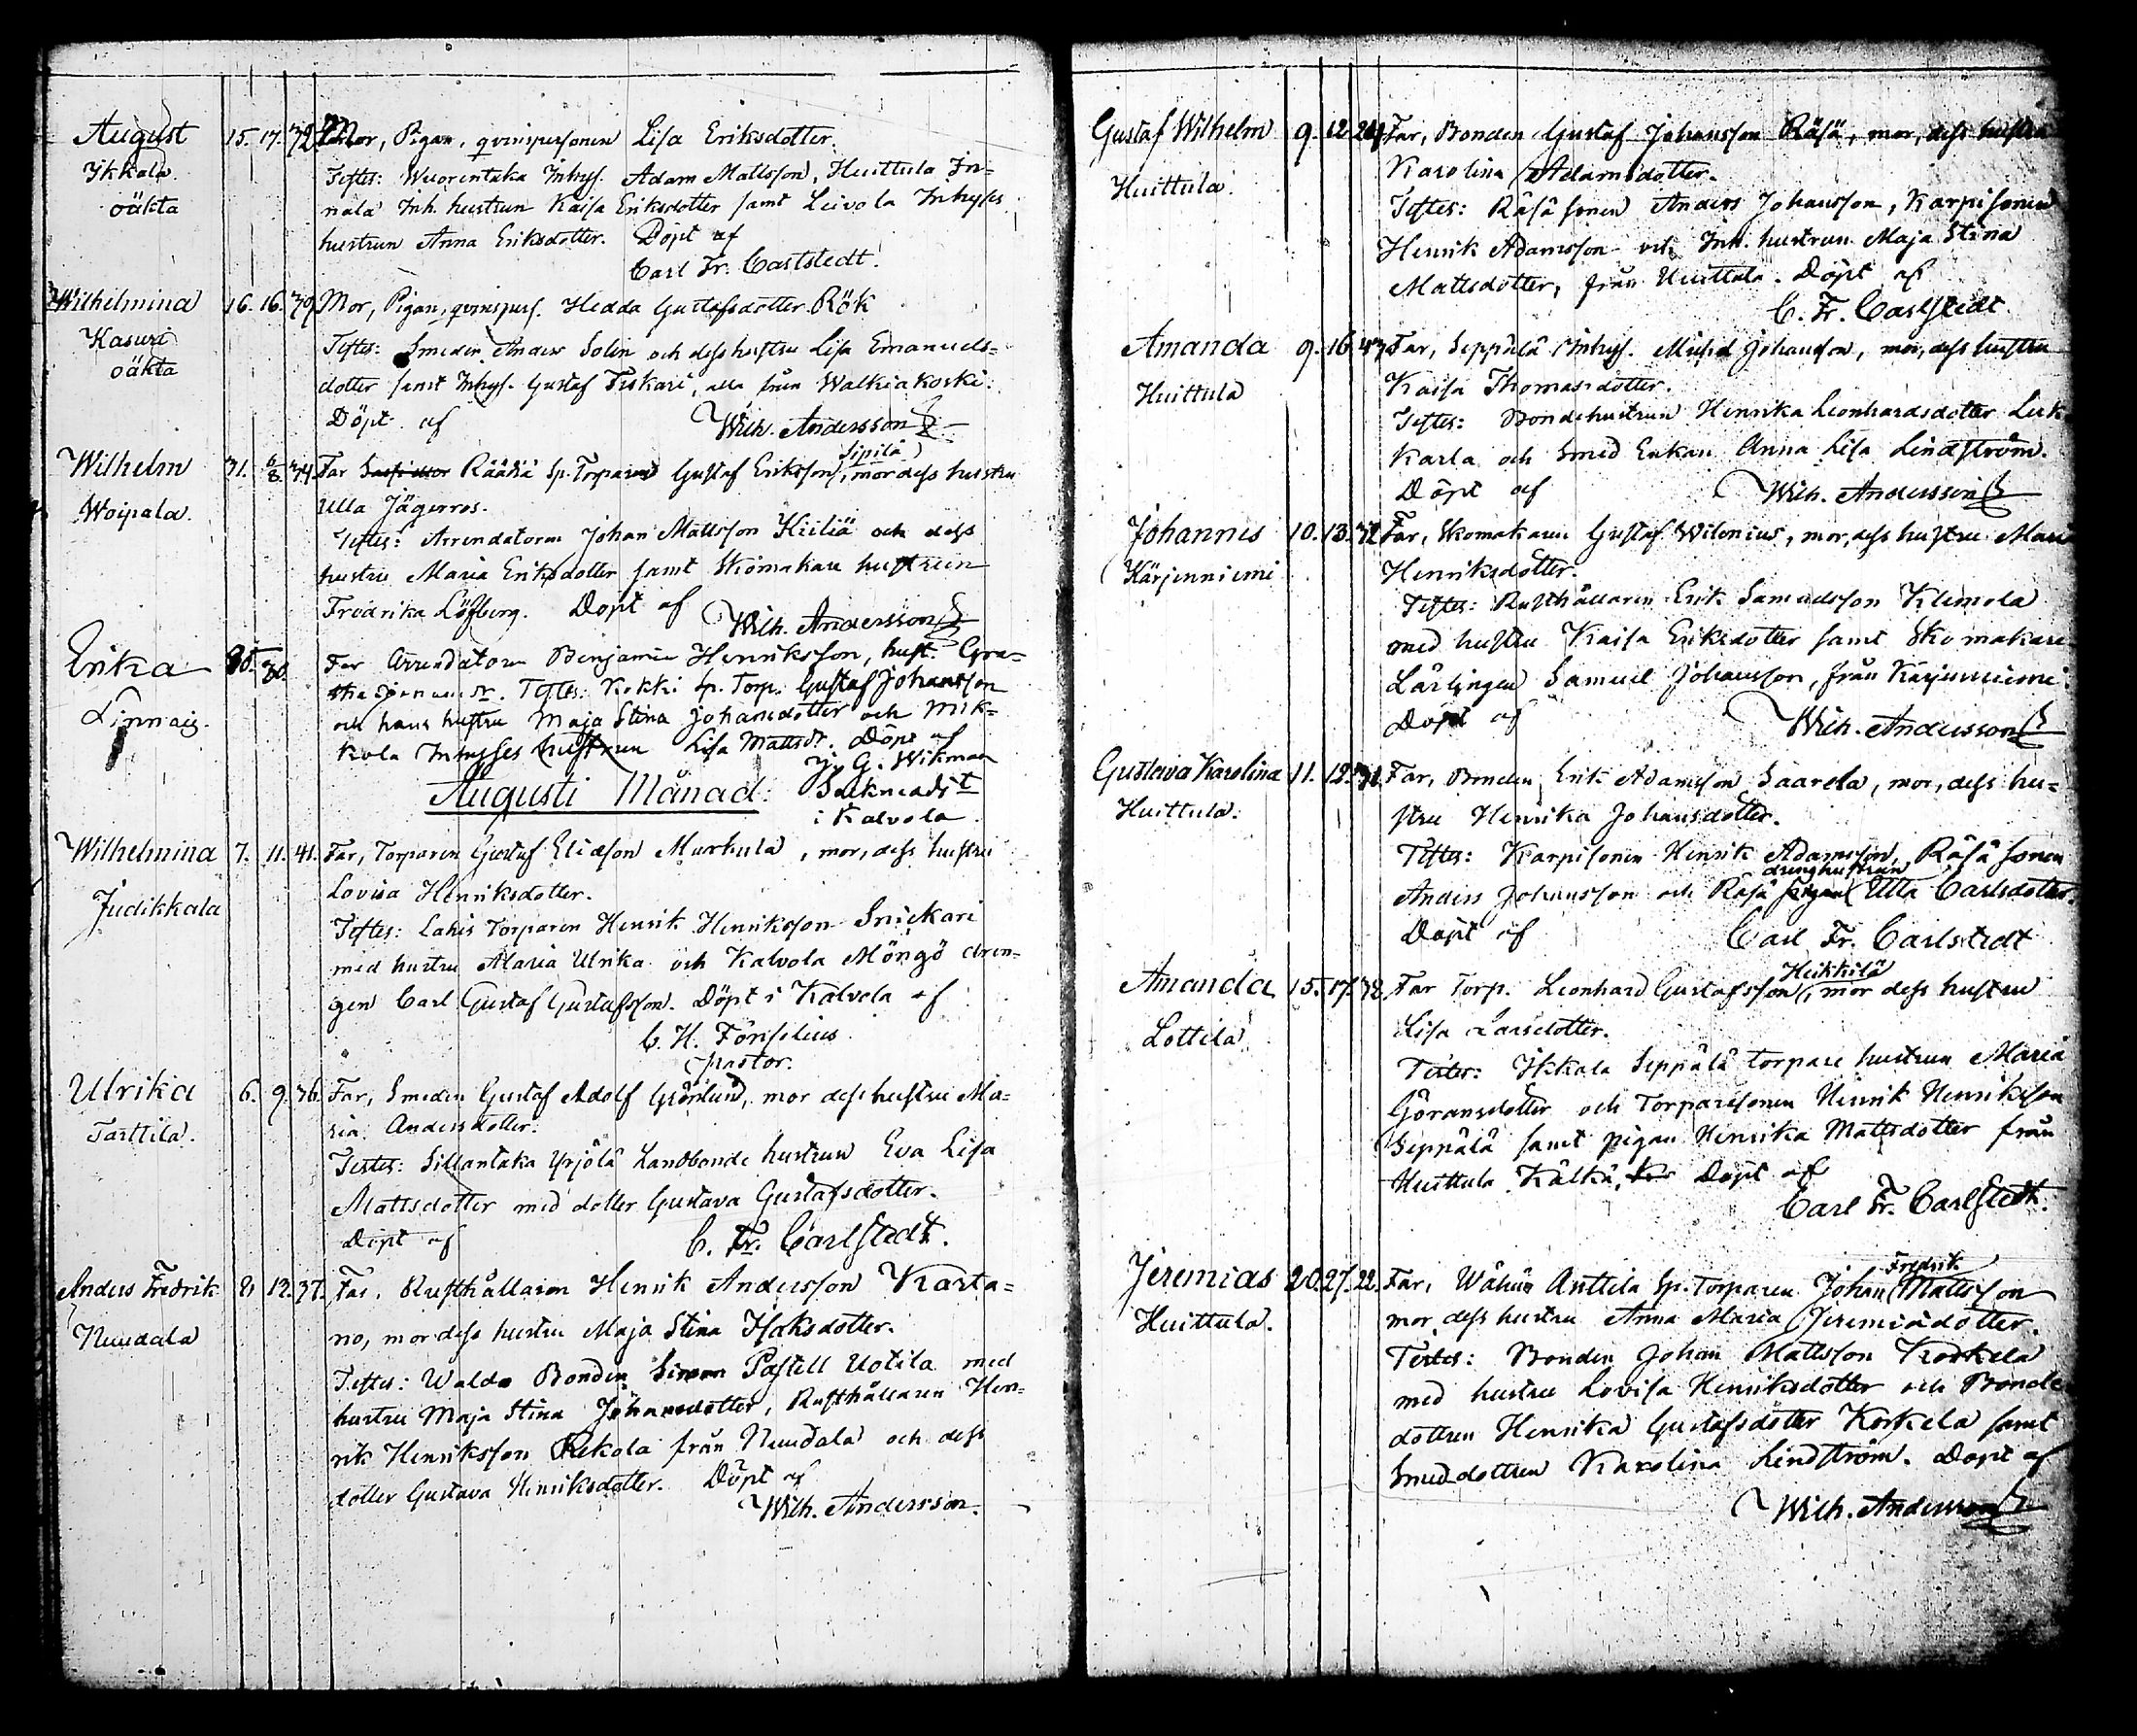 August 15. 17. 32 Mor, Pigan, qvinspersonen Lisa Eriksdotter.
Ikkala Testes: Wuorentaka Inhys. Adam Mattsson, Huittula
oäkta nala Inh. hustrun Kaisa Eriksdotter samt Leivola Inhyses
hustrun Anna Eriksdotter. Döpt af
Carl Fr. Carlstedt.
Wilhelmina 16. 16. 39 Mor, Pigan, qvinspers. Hedda Gustafsdotter Rök
Kasuri Testes: Smeden Anders Solin och dess hustru Lisa Emanuels-
oäkta dotter samt Inhys. Gustaf Fiskari, alla från Walkiakoski.
Döpt af Wilh. Andersson
Sipilä
Wilhelm 31. 6/8 34 Far Rääkiä Sp. Torparen Gustaf Eriksson, mor dess hustru
Woipala. Ulla Jägerros.
Testes: Arrendatorn Johan Mattsson Kiiliä och dess
hustru Maria Eriksdotter samt Skomakare hustrun
Fredrika Löfberg. Döpt af
Wilh. Andersson
Erika 30. Far Arrendatorn Benjamin Henriksson, hust. Gre-
tha Testes: Kokki Sp. Torp. Gustaf Johansson
Linnais. och hans hustru Maja Stina Johansdotter och Mik-
kola Inhyses hustrun Lisa Mattsdr. Döpt af
J. G. Wikman
Augusti Månad.
i Kalvola
Wilhelmina 7. 11. 41. Far, Torparen Gustaf Eliasson Murkula, mor, dess hustru
Judikkala Lovisa Henriksdotter.
Testes: Lahis Torparen Henrik Henriksson Snickari
med hustru Maria Ulrika och Kalvola Möngö dren-
gen Carl Gustaf Gustafsson. Döpt i Kalvola af
C. H. Forsilius
pastor.
Ulrika 6. 9. 36. Far, Smeden Gustaf Adolf Grönlund, mor dess hustru Ma-
Tarttila. ria Andersdotter.
Testes: Sillantaka Yrjölä Landbonde hustrun Eva Lisa
Mattsdotter med dotter Gustava Gustafsdotter.
Döpt af C. Fr. Carlstedt.
Anders Fredrik 8 13. 37. Far, Rusthållaren Henrik Andersson Karta-
Nuudala no, mor dess hustru Maja Stina Isaksdotter.
Testes: Waldo Bonden Simon Pastell Uotila med
hustru Maja Stina Johansdotter, Rusthållaren Hen-
rik Henriksson Rekola från Nuudala och dess
dotter Gustava Henriksdotter. Döpt af
Wilh. Andersson.
Gustaf Wilhelm 9. 12. 24 Far, Bonden Gustaf Johansson Räsä, mor, dess hustru
Huittula. Karolina Adamsdotter.
Testes: Räsä sonen Anders Johansson, Karpi sonen
Henrik Adamsson och Inh. hustrun Maja Stina
Mattsdotter, från Huittula. Döpt af
C. Fr. Carlstedt.
Amanda 9. 16. 43 Far, Seppälä Inhys. Michel Johansson, mor, dess hustru
Huittula Kaisa Thomasdotter.
Testes: Bondehustrun Henrika Leonhardsdotter
Karla och Smed Enkan Anna Lisa Lindström.
Döpt af Wilh. Andersson
Johannes 10. 13. 32 Far, Skomakaren Gustaf Wilenius, mor, dess hustru Maria
Kärjenniemi Henriksdotter.
Testes: Rusthållaren Erik Samuelsson Klemola
med hustru Kaisa Eriksdotter samt Skomakare
Lärlingen Samuel Johansson, från Kärjenniemi.
Döpt af Wilh. Andersson
Gustava Karolina 11. 12. 31. Far, Bonden, Erik Adamsson Saarela, mor, dess hu-
Huittula. stru Henrika Johansdotter.
Testes: Karpisonen Henrik Adamsson, Räsä sonen
drenghustrun
Anders Johansson och Räsä pigan Ulla Carlsdotter.
Döpt af Carl Fr. Carlstedt
Heikkilä
Amanda 15. 17. 32 Far Torp. Leonhard Gustafsson, mor dess hustru
Lottila Lisa Larsdotter.
Testes: Ikkala Seppälä torpare hustrun Maria
Göransdotter och Torparesonen Henrik Henriksson
Seppälä samt pigan Henrika Mattsdotter från
Huittula Kälkä, Döpt af
Carl Fr. Carlstedt.
Fredrik
Jeremias 20. 27. 22. Far, Wähän Anttila Sp. Torparen Johan Mattsson
Huittula. mor dess hustru Anna Maria Jeremiadotter.
Testes: Bonden Johan Mattsson Korkela
med hustru Lovisa Henriksdotter och Bonde
dottren Henrika Gustafsdotter Korkela samt
Smeddottren Karolina Lindström. Döpt af
Wilh. Andersson